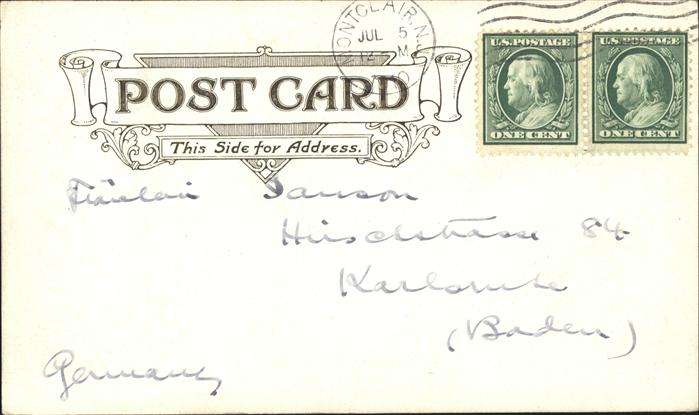 MONTCLAIR, N.J.
JUL 5
12-M
U.S. POSTAGE U.S. POSTAGE
ONE CENT ONE CENT
POST CARD
This Side for Address.
Fräulein Janson
Hirschstrasse 84
Karlsruhe
(Baden)
Germany